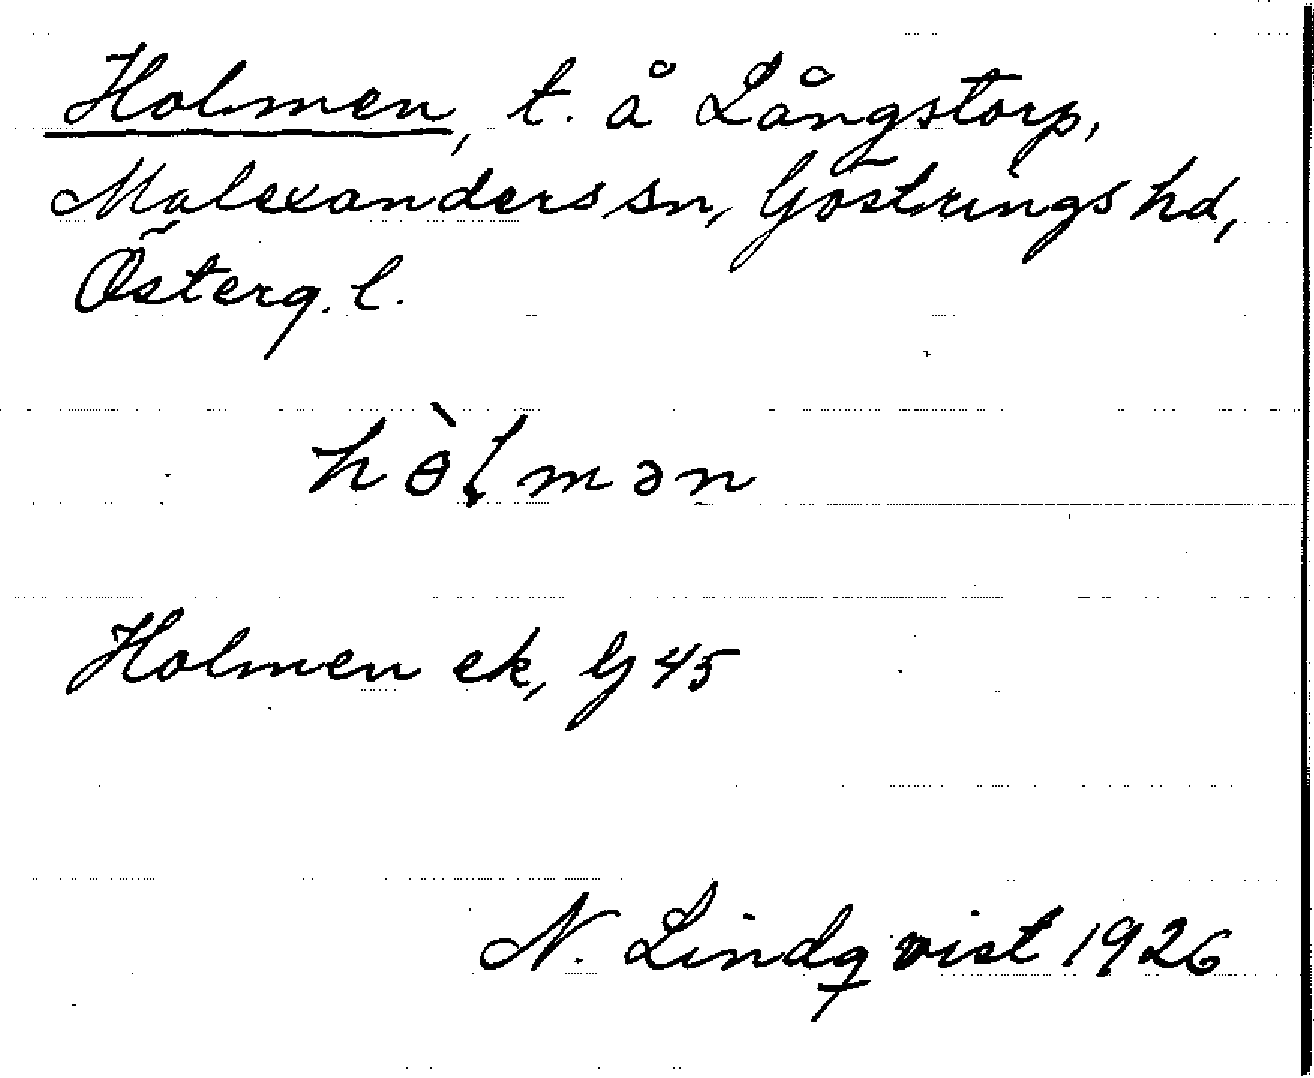 Holmen, t. å Långstorp,
Malexanders sn, Göstrings hd,
Österg. l.
hɵ̀lmən
Holmen ek, G 45
N. Lindqvist 1926